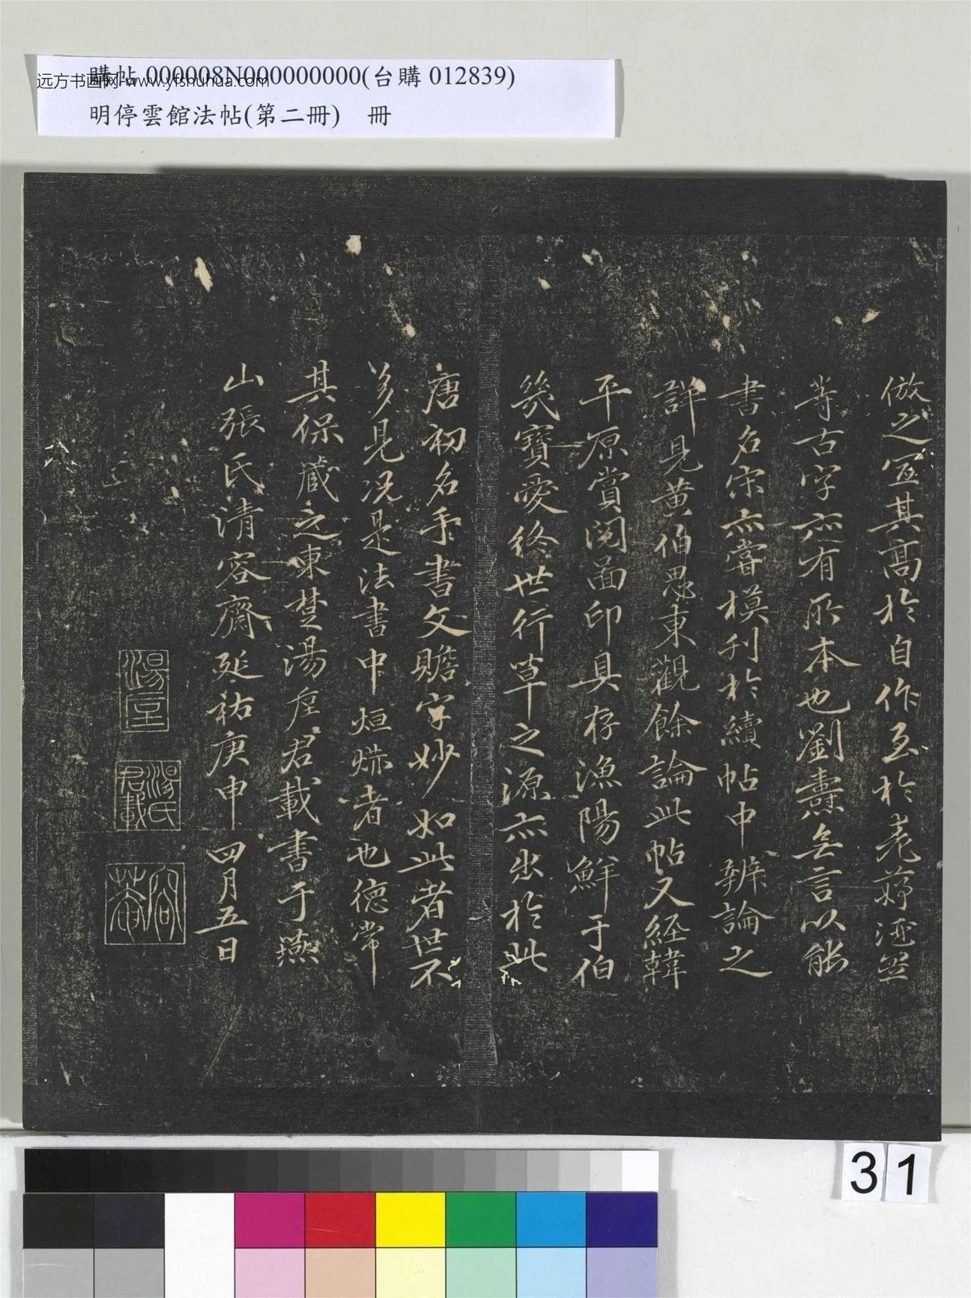 購帖 000008N000000000(台購 012839)
远方书画网 www.yfshuhua.com
明停雲館法帖(第二冊) 冊
倣之宜其高於自作至於老莽遊興
等古字亦有所本也劉燾無言以能
書名宋亦嘗模刊於續帖中辨論之
詳見黃伯思東觀餘論此帖又經韓
平原賞閱畐印具存漁陽鮮于伯
幾寶愛終世行草之源亦出於此
唐初名手書文贍字妙如此者世不
多見況是法書中烜赫者也德常
其保藏之東楚湯垕君載書于燕
山張氏清容齋延祐庚申四月五日
湯垕
湯氏君載
31